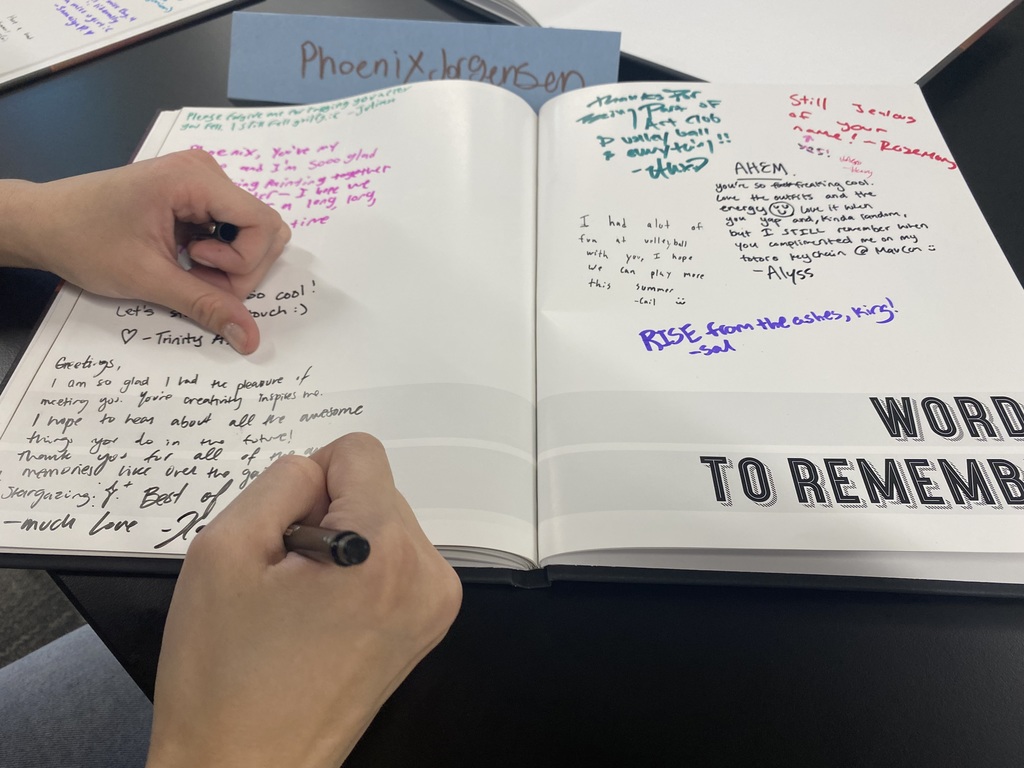 Phoenix Jorgensen
Please forgive me for tugging you after
you fell I still feel guilty :( - Juliana
Phoenix, You're my
and I'm sooo glad
Painting together
I hope we
a long, long,
time
so cool!
Let's touch :)
♡ - Trinity A.
Greetings,
I am so glad I had the pleasure of
meeting you. You're creativity inspires me.
I hope to hear about all the awesome
things you do in the future!
Thank you for all of the
memories like over the
stargazing. Best of
- much love -
Thanks For
Being Part of
Art Club
volleyball
& everything!!
Still Jealous
of your
name! - Rosemary
Yes!
AHEM.
you're so freaking cool.
Love the outfits and the
energy love it when
you yap and, kinda random,
but I STILL remember when
you complimented me on my
totoro keychain @ MavCon :)
- Alyss
I had alot of
fun at volleyball
with you, I hope
we can play more
this summer
- Cail :)
RISE from the ashes, King!
- Sal
WORD
TO REMEMB